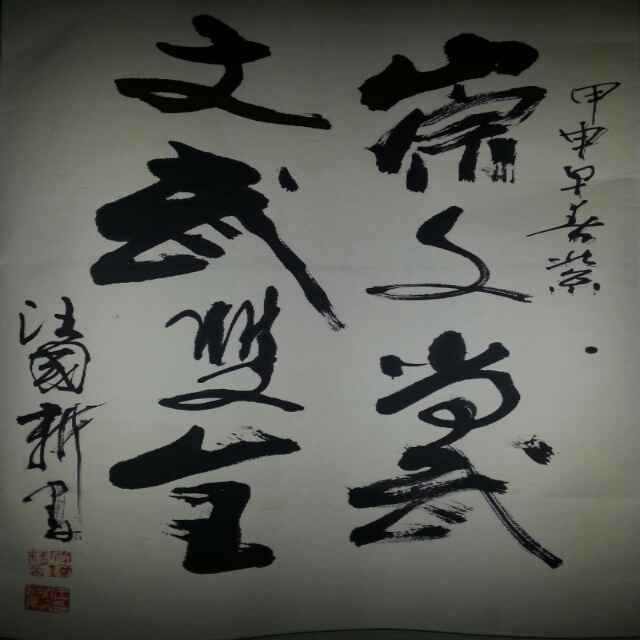 甲申早春
崇文尚武
文武雙全
汪國新書